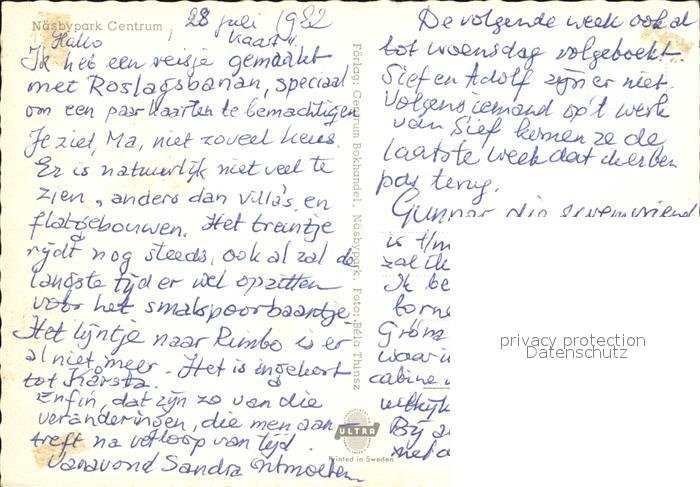 Näsbypark Centrum, 28 juli 1982
Hallo kaart
Ik heb een reisje gemaakt
met Roslagsbanan, speciaal
om een paar kaarten te bemachtigen
Je ziet, Ma, niet zoveel keus.
Er is natuurlijk niet veel te
zien, anders dan villa's en
flatgebouwen. Het treintje
rijdt nog steeds, ook al zal de
langste tijd er wel opzitten
voor het smalspoorbaantje.
Het lijntje naar Rimbo is er
al niet meer. Het is ingekort
tot Kårsta.
Enfin, dat zijn zo van die
veranderingen, die men aan-
treft na verloop van tijd.
Vanavond Sandra ontmoeten
Förlag: Centrum Bokhandel, Näsbypark. Foto: Béla Thinsz
ULTRA
Printed in Sweden
De volgende week ook al
tot woensdag volgeboekt.
Sief en Adolf zijn er niet.
Volgens iemand op 't werk
van Sief komen ze de
laatste week dat ik er ben
pas terug.
Gunnar die zwemvriend
is t/m
zal ik
Ik be
torne
Gröna
waar i
cabine
uitkijk
Bij a
met
privacy protection
Datenschutz